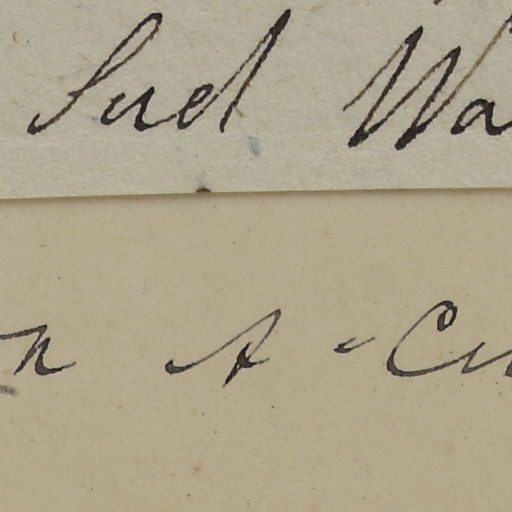 Sud Wa
n A - Cu